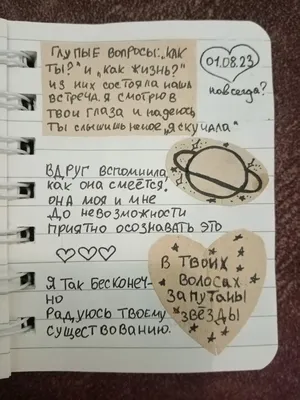 Глупые вопросы: „как
ты?" и „как жизнь?"
из них состояла наша
встреча. Я смотрю в
твои глаза и надеюсь,
ты слышишь немое „я скучала"
01.08.23
навсегда?
Вдруг вспомнила,
как она смеётся.
она моя и мне
до невозможности
приятно осознавать это
Я так бесконеч-
но
радуюсь твоему
существованию.
В твоих
волосах
запутаны
звёзды